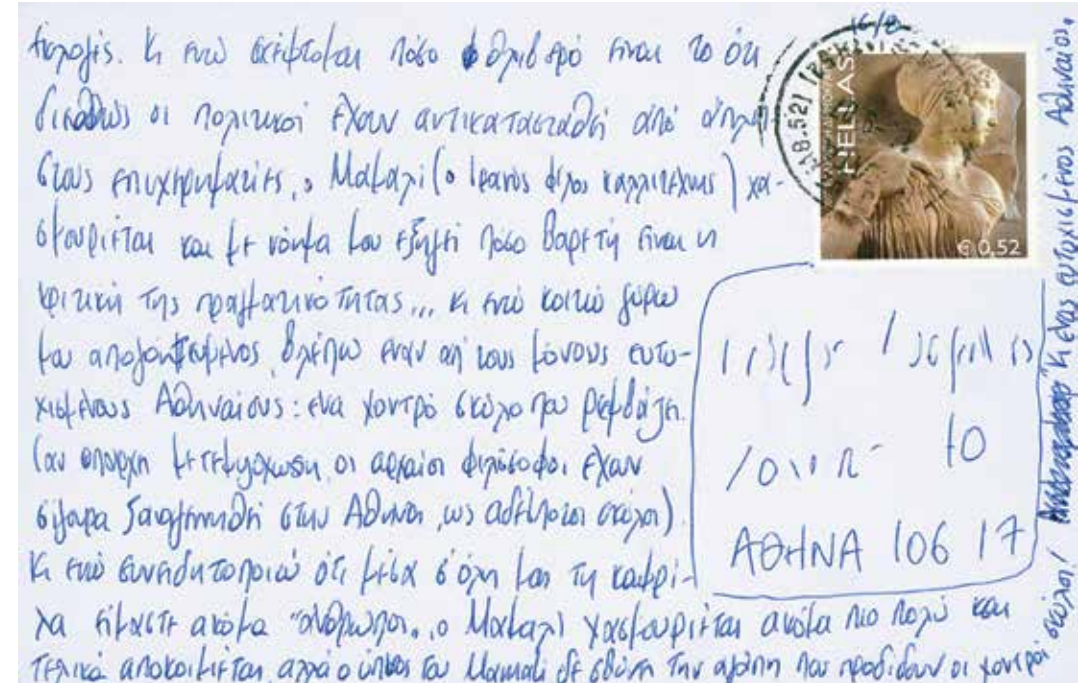 επιλογής. Κι ενώ σκέφτομαι πόσο θλιβερό είναι το ότι
διεθνώς οι πολιτικοί έχουν αντικατασταθή από άπλη-
στους επιχειρηματίες, ο Μαμαλί (ο Ιρανός φίλος καλλιτέχνης) χα-
σμουριέται και με νόημα μου εξηγεί πόσο βαρετή είναι η
κριτική της πραγματικότητας... κι ενώ κοιτώ γύρω
μου απογοητευμένος, βλέπω έναν απ' τους μόνους ευτυ-
χισμένους Αθηναίους: ένα χοντρό σκύλο που ρεμβάζει.
(αν υπάρχη μετεμψύχωση, οι αρχαίοι φιλόσοφοι έχουν
σίγουρα ξαναγεννηθή στην Αθήνα, ως αδέσποτοι σκύλοι)
Κι ενώ συνειδητοποιώ ότι μέσα σ' όλη μας τη καφρί-
λα είμαστε ακόμα "άνθρωποι", ο Μαμαλί χασμουριέται ακόμα πιο πολύ και
τελικά αποκοιμιέται, αλλά ο ύπνος του Mamali δε σβύνει την αγάπη που προδίδουν οι χοντροί
σκύλοι! Κι ένας ευτυχισμένος Αθηναίος.
16/8
HELLAS
€ 0,52
10
ΑΘΗΝΑ 106 17